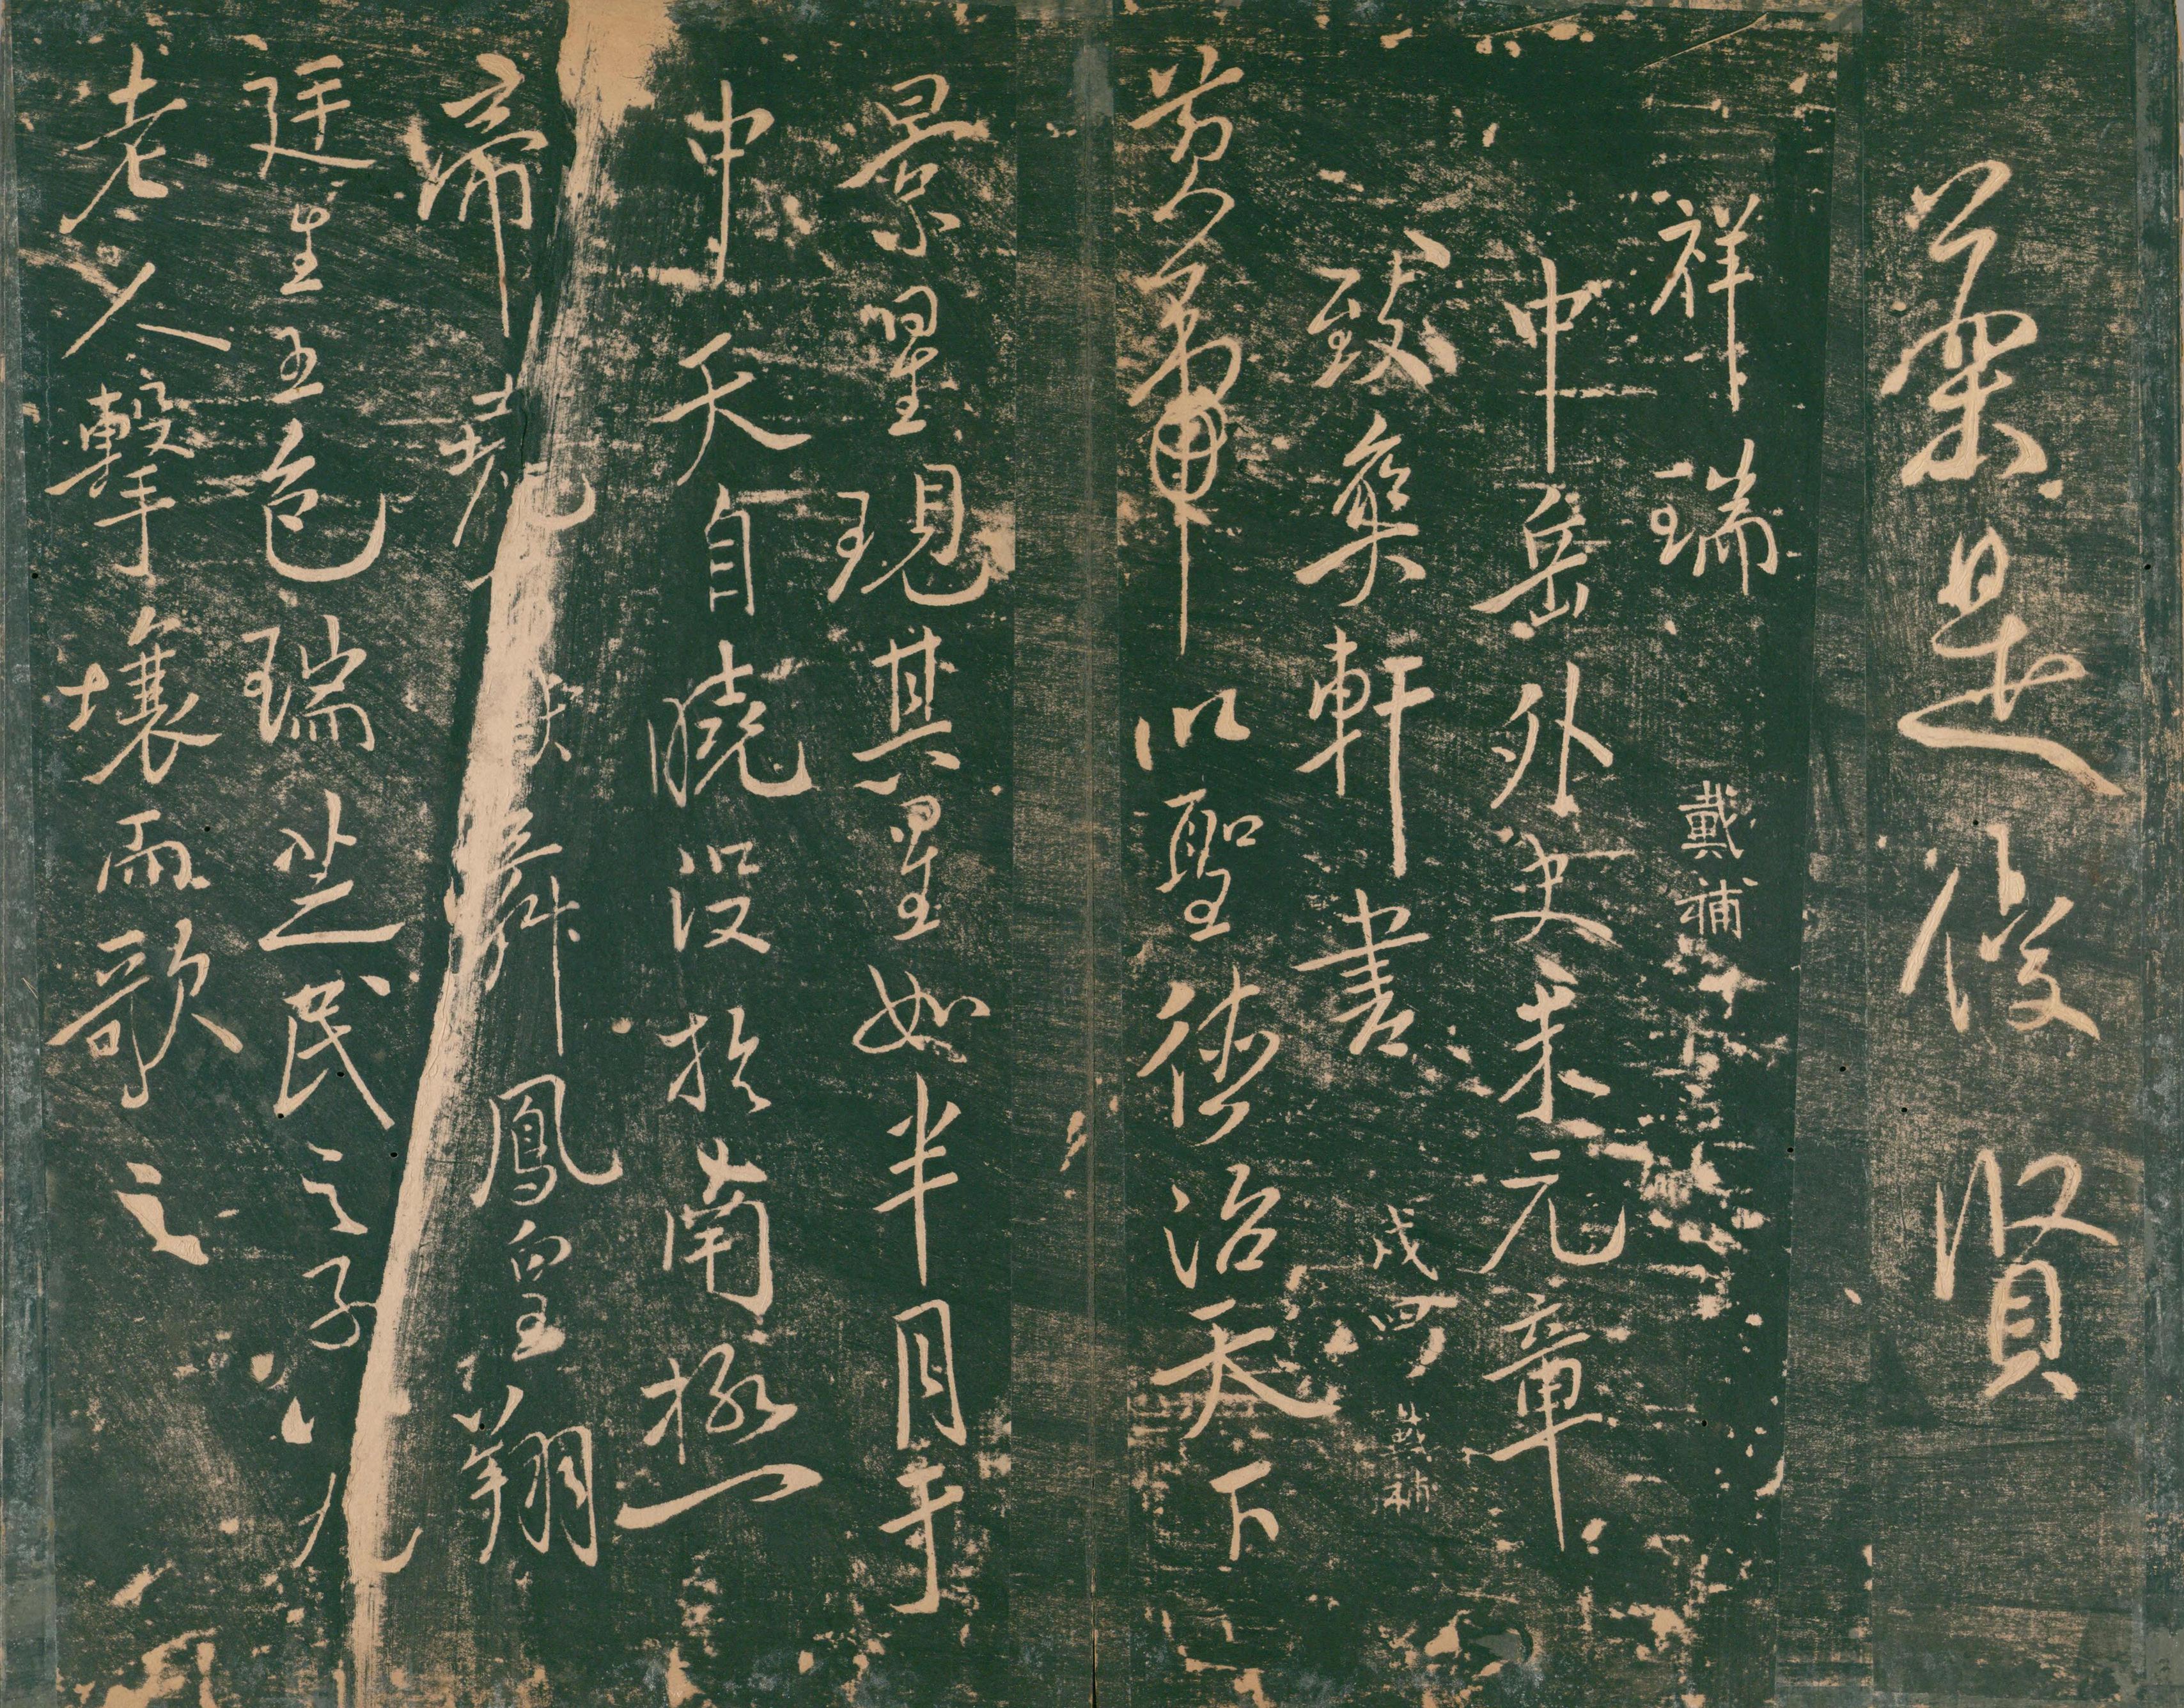 業是復賢
祥瑞 戴補
中岳外史米元章
致爽軒書 戴補
黃帝以聖德治天下
景星現其星如半月于
中天自曉没於南極一
帝堯 舜鳳皇翔
廷生五色瑞芝民之子
老人擊壤而歌之